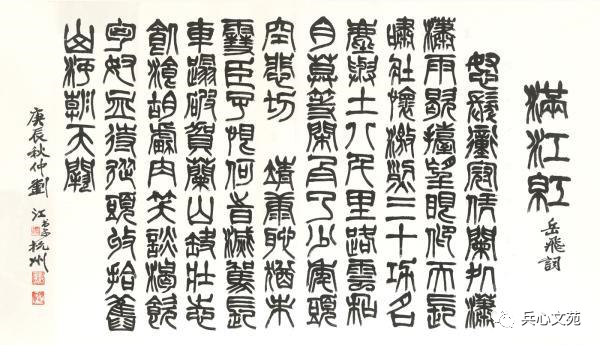 滿江紅
岳飛詞
怒髮衝冠凭闌処瀟
瀟雨歇擡望眼仰天長
嘯壯懷激烈三十功名
塵與土八千里路雲和
月莫等閑白了少年頭
空悲切 靖康恥猶未
雪臣子恨何旹滅駕長
車蹋破賀蘭山缺壯志
飢湌胡虜肉笑談渴飲
匈奴血待從頭收拾舊
山河朝天闕
庚辰秋仲劉江書於杭州
兵心文苑